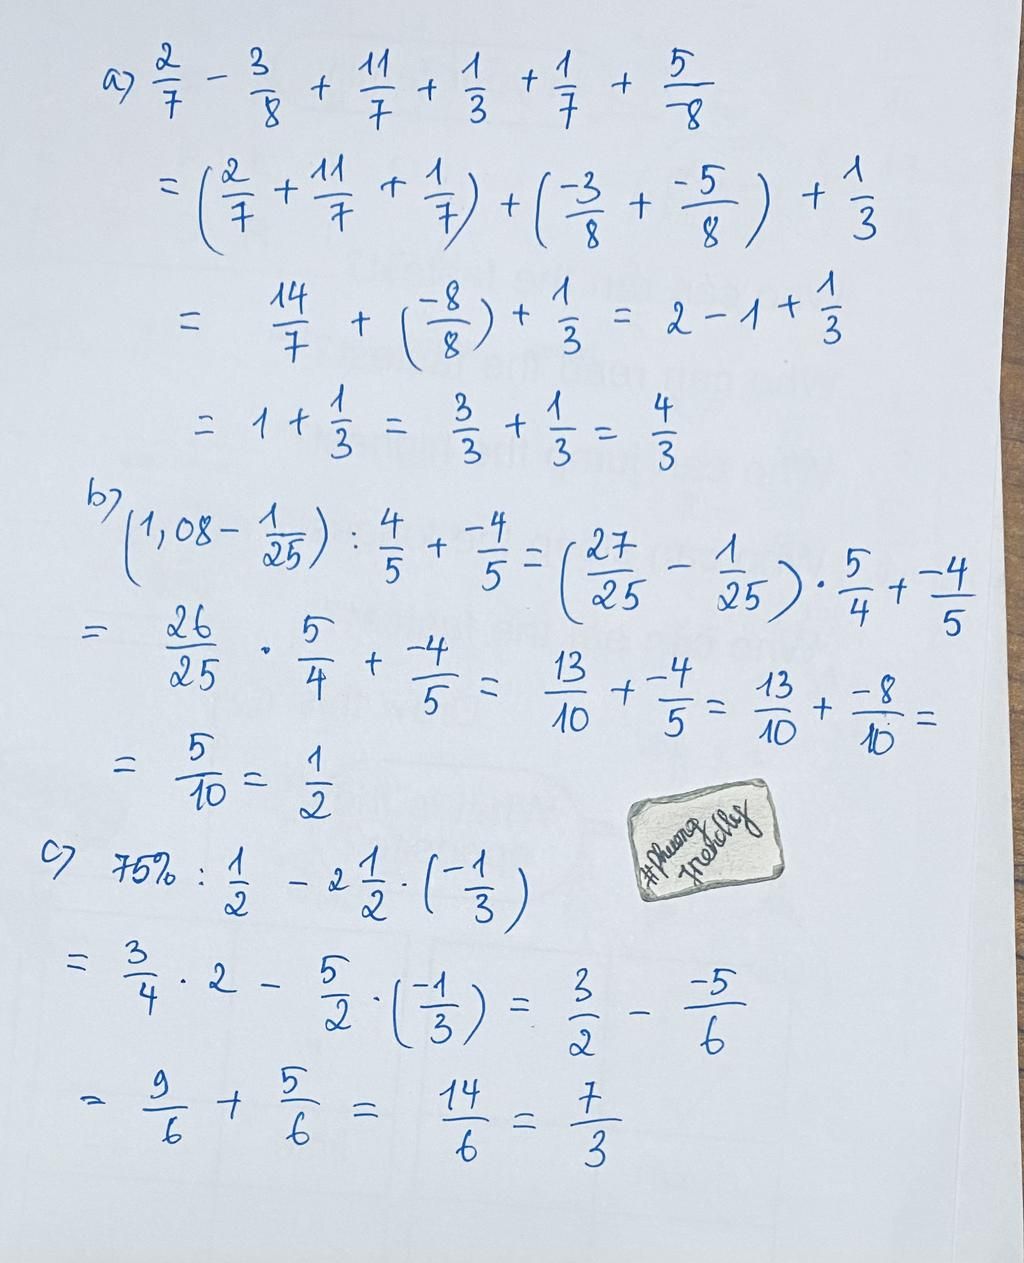 a) 2/7 - 3/8 + 11/7 + 1/3 + 1/7 + 5/-8
= (2/7 + 11/7 + 1/7) + (-3/8 + -5/8) + 1/3
= 14/7 + (-8/8) + 1/3 = 2 - 1 + 1/3
= 1 + 1/3 = 3/3 + 1/3 = 4/3
b) (1,08 - 1/25) : 4/5 + -4/5 = (27/25 - 1/25) . 5/4 + -4/5
= 26/25 . 5/4 + -4/5 = 13/10 + -4/5 = 13/10 + -8/10 =
= 5/10 = 1/2
#Phuong
Friendly
c) 75% : 1/2 - 2 1/2 . (-1/3)
= 3/4 . 2 - 5/2 . (-1/3) = 3/2 - -5/6
= 9/6 + 5/6 = 14/6 = 7/3